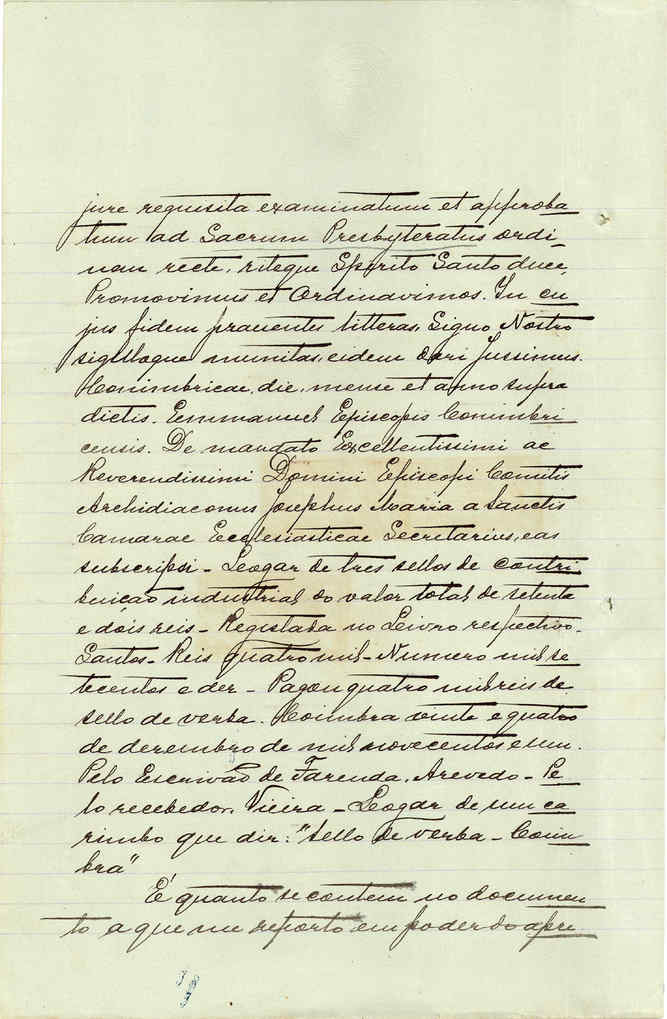 jure requisita examinatum et approba
tum ad Sacrum Presbyteratus ordi_
nem recte, riteque Spirito Santo duce,
Promovimus et Ordinavimos. In cu
jus fidem praesentes litteras, Signo Nostro
sigilloque munitas, eidem dari jussimus.
Conimbricae, die, mense et anno supra
dictis. Emmanuel Episcopis Conimbri
censis. De mandato Excellentissimi ac
Reverendissimi Domini Episcopi Comitis
Archidiaconus Josephus Maria a Sanctis
Camarae Ecclesiasticae Secretarius, eas
subscripsi - Logar de tres sellos de contri
buição industrial do valor total de setenta
e dois reis - Registada no Livro respectivo.
Santos - Reis quatro mil - Numero mil se
tecentos e dez - Pagou quatro mil reis de
sello de verba. Coimbra vinte e quatro
de dezembro de mil novecentos e um.
Pelo Escrivão de Fazenda, Azevedo - Pe
lo recebedor, Vieira - Logar de um ca
rimbo que diz: "sello de verba - Coim
bra"
É quanto se contem no documen
to a que me reporto em poder do apre